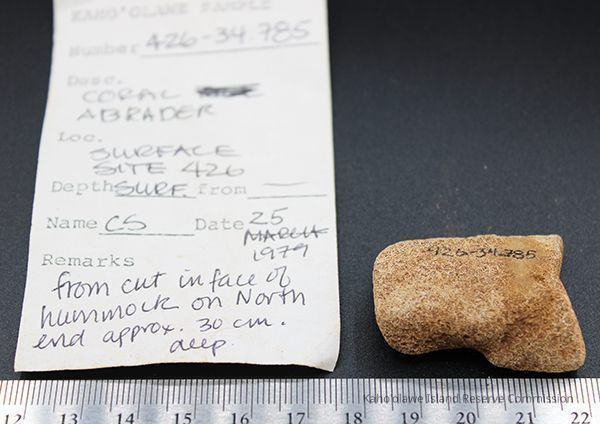 KAHO'OLAWE SAMPLE
Number 426-34.785
Desc.
CORAL
ABRADER
Loc.
SURFACE
SITE 426
Depth SURF. from —
Name CS Date 25
MARCH
1979
Remarks
from cut in face of
hummock on North
end approx. 30 cm.
deep.
426-34.785
Kaho'olawe Island Reserve Commission
12 13 14 15 16 17 18 19 20 21 22